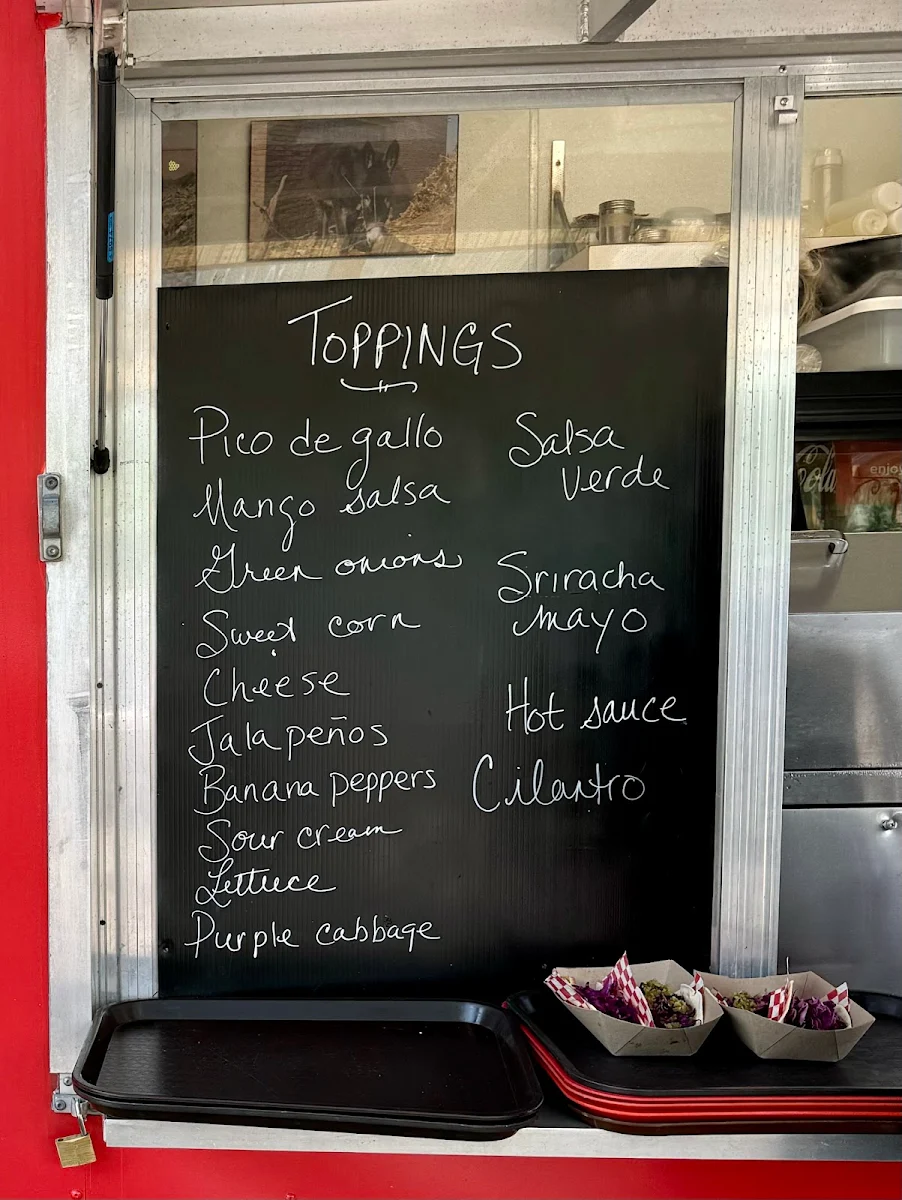 TOPPINGS
Pico de gallo
Mango salsa
Green onions
Sweet corn
Cheese
Jalapeños
Banana peppers
Sour cream
Lettuce
Purple cabbage
Salsa
Verde
Sriracha
mayo
Hot sauce
Cilantro
enjoy